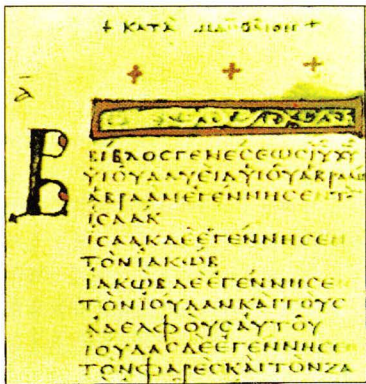 + ΚΑΤᾺ ΜΑΤΘΑΙΟΝ +
Α̅
Β
ΒΙΒΛΟϹΓΕΝΕϹΕΩϹΙ̅Υ̅Χ̅Υ̅
ΥΙΟΥΔΑΥΕΙΔΥΙΟΥΑΒΡΑΑΜ
ΑΒΡΑΑΜΕΓΕΝΝΗϹΕΝΤΟ
ΙϹΑΑΚ
ΙϹΑΑΚΔΕΕΓΕΝΝΗϹΕΝ
ΤΟΝΙΑΚΩΒ
ΙΑΚΩΒΔΕΕΓΕΝΝΗϹΕΝ
ΤΟΝΙΟΥΔΑΝΚΑΙΤΟΥϹ
ΑΔΕΛΦΟΥϹΑΥΤΟΥ
ΙΟΥΔΑϹΔΕΕΓΕΝΝΗϹΕΝ
ΤΟΝΦΑΡΕϹΚΑΙΤΟΝΖΑ